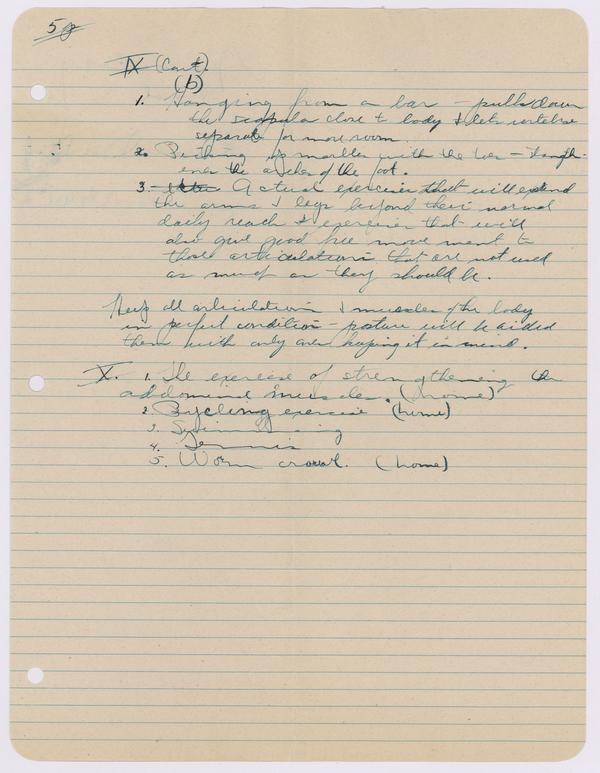 50
IX (Cont)
(b)
1. Hanging from a bar - pulls down
the scapula close to body & lets vertebrae
separate for more room.
2. Picking up marbles with the toes - strength-
ens the arches of the foot.
3. Actual exercises that will extend
the arms & legs beyond their normal
daily reach & exercises that will
also give good free movement to
those articulations that are not used
as much as they should be.
Keep all articulations & muscles of the body
in perfect condition - posture will be aided
then with only our keeping it in mind.
X. 1. The exercise of strengthening the
abdominal muscles. (home)
2. Bycycling exercise (home)
3. Swimming
4. Tennis
5. Worm crawl. (home)